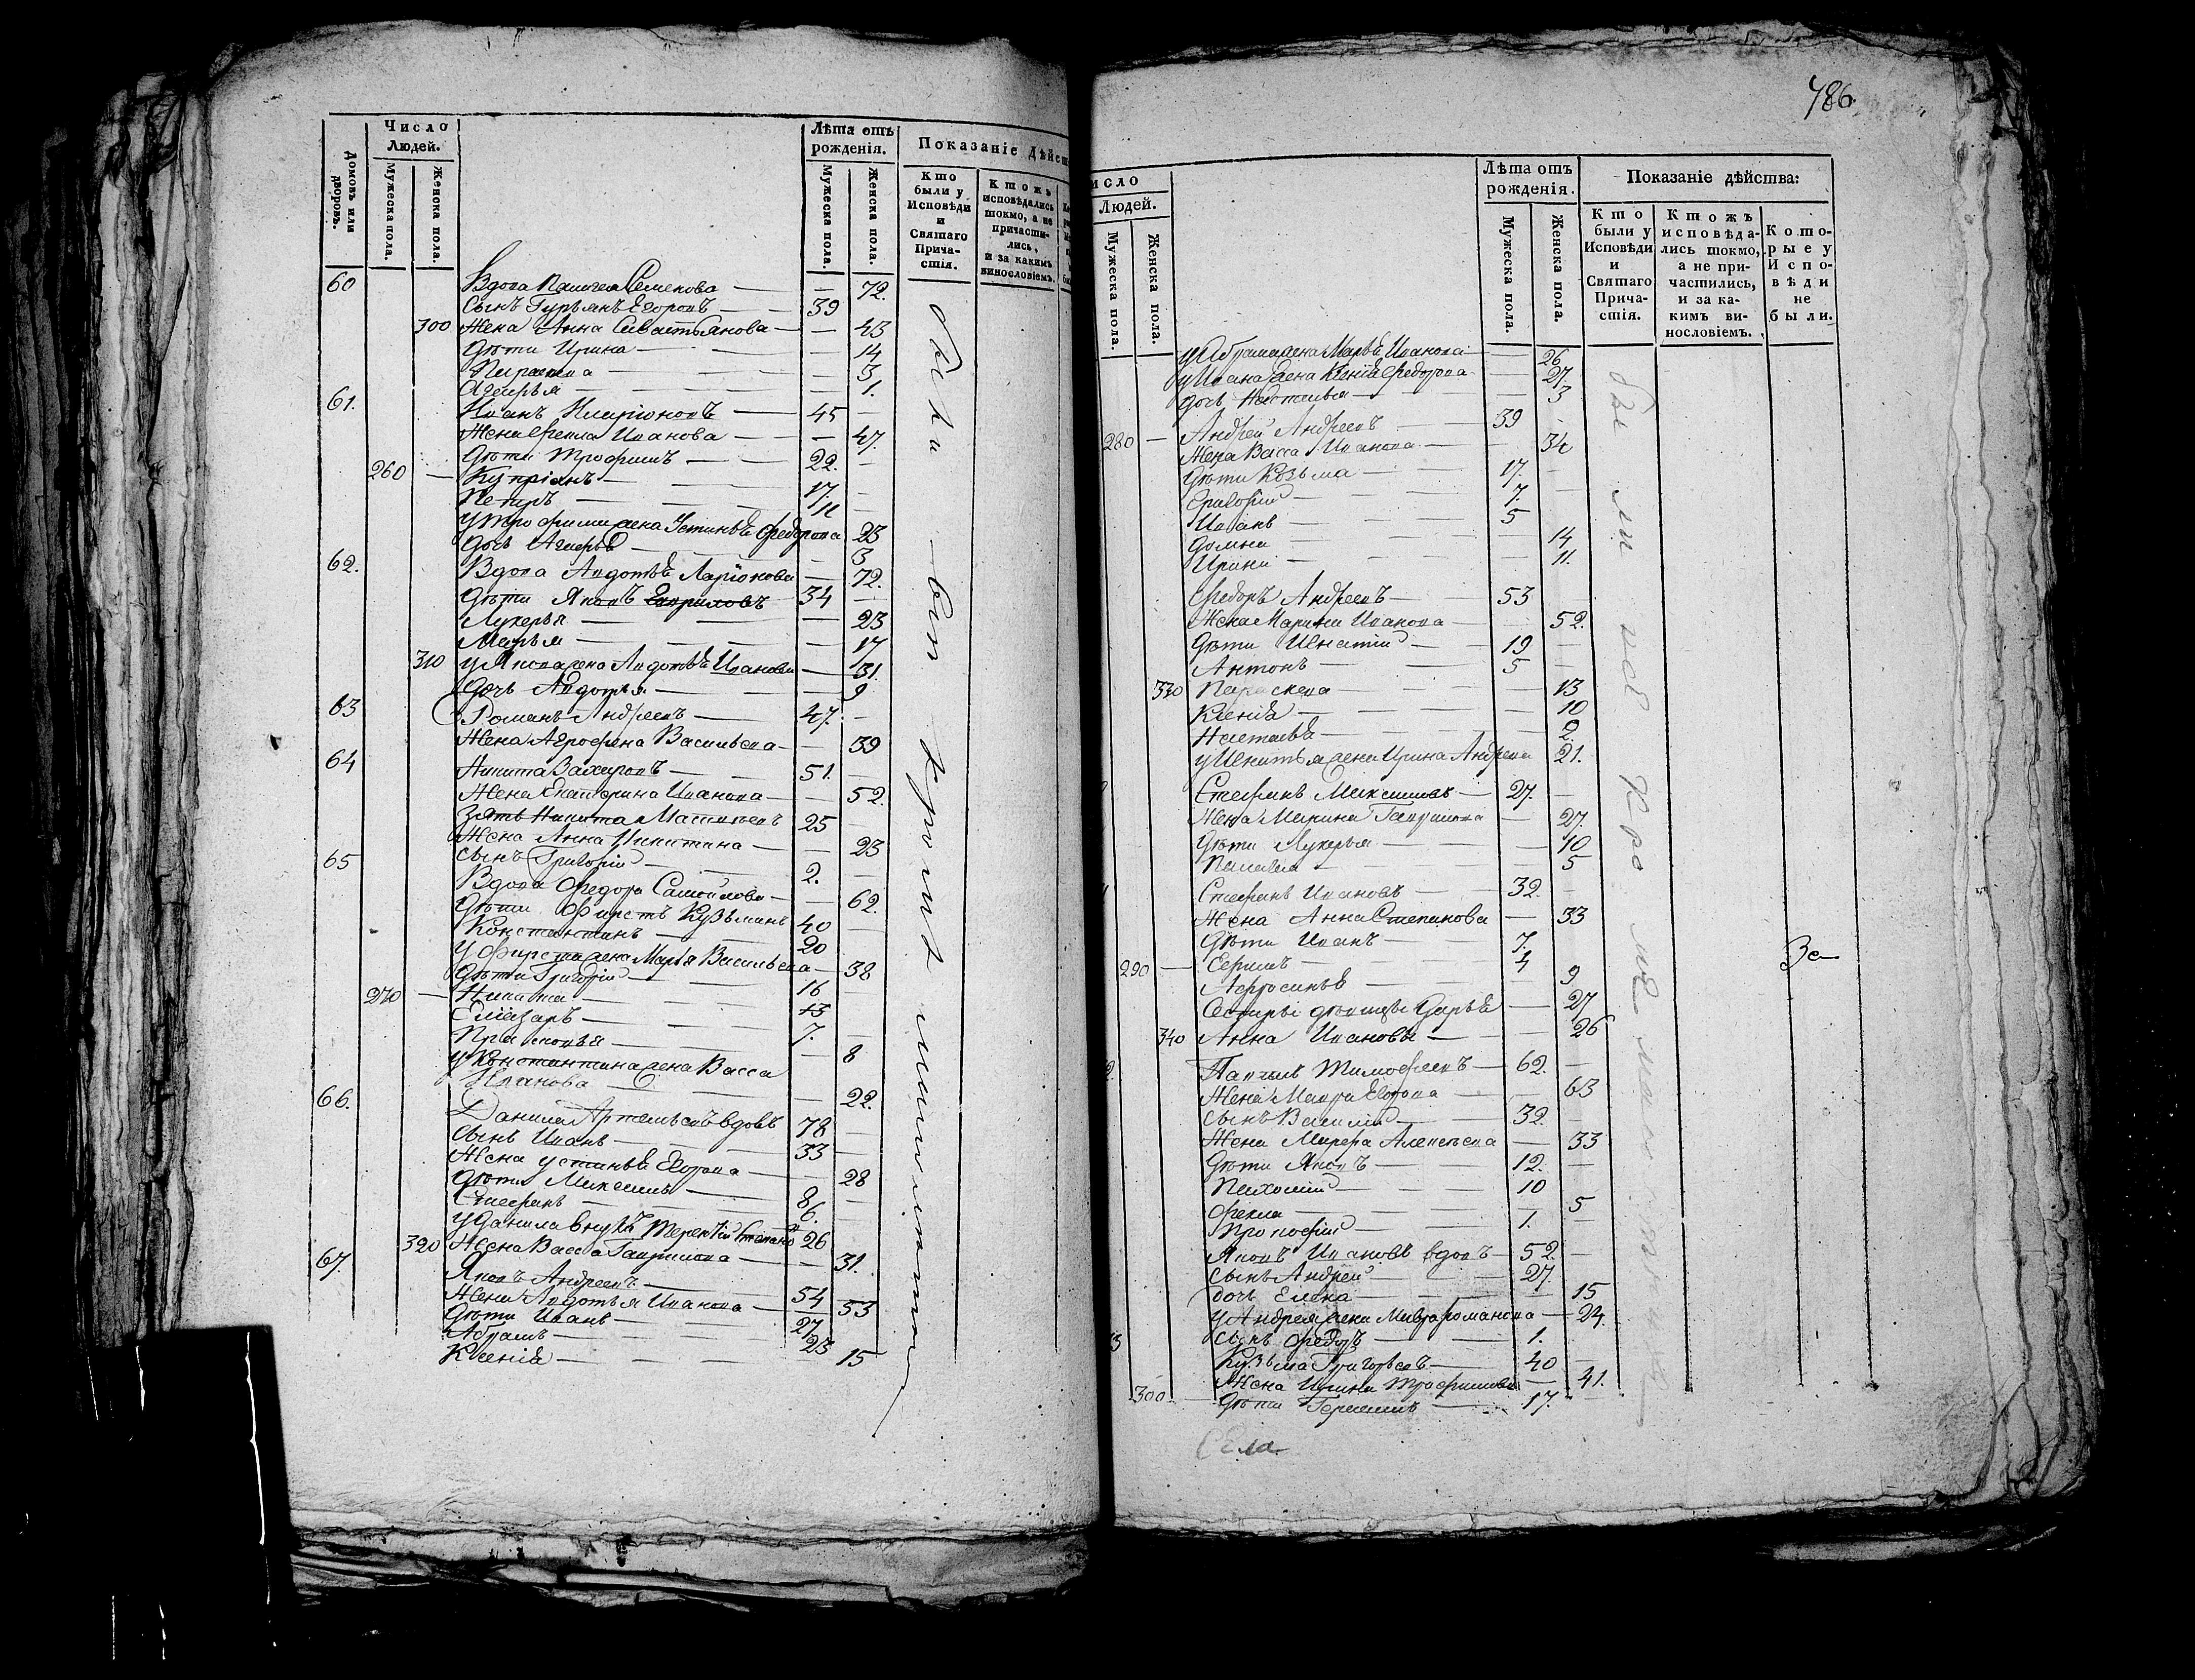 486.
Домовъ или дворовъ.
Число Людей.
Мужеска пола.
Женска пола.
Лѣта отъ рожденія.
Мужеска пола.
Женска пола.
Показаніе дѣйст
Кто были у Исповѣди и Святаго Прича-стія.
Ктожъ исповѣдались токмо, а не причасти-лись, и за какимъ винословіемъ.
60 Вдова Пелагея Семенова — — 72.
Сынъ Гурьянъ Егоровъ — 39
300 Жена Анна Севастьянова — — 43
Дѣти Ирина — — 14
— 3
— 1.
61. Иванъ Иларіоновъ — 45 —
Жена Фекла Иванова — — 47.
Дѣти Трофимъ — 22. —
260 — Купріанъ — 17. —
Петръ — 11 —
У Трофима жена Устинья Федорова 23
Дочь — 3
62. Вдова Авдотья Ларіонова — 72.
Дѣти Яковъ 34 —
Лукерья — — 23
Марья — — 17
310 У Якова жена Авдотья Иванова — 31.
Дочь Авдотья — — 9
63 Романъ Андреевъ — 47. —
Жена Агрофена Васильева — — 39
64 Никита Захаровъ — 51. —
Жена Екатерина Иванова — — 52.
Зять Никита Матвѣевъ 25 —
Жена Анна Никитина — — 23
Сынъ Григорій — 2. —
65 Вдова Федора Самойлова — — 62.
Дѣти Фирстъ Кузьминъ 40 —
Константинъ — 20
У Фирста жена Марья Васильева — 38
Дѣти Григорій — 16
270 — Никита — 13
Елизаръ — 7. —
Прасковья — — 8
У Константина жена Васса
Иванова — — 22.
66. Данила Артемьевъ вдовъ 78 —
Сынъ Иванъ — 33 —
Жена Устинья Егорова — — 28
Дѣти Максимъ — 8 —
Стефанъ — 6. —
У Данила внукъ Терентій Степано 26
320 Жена Васса Гаврилова — — 31.
67. Яковъ Андреевъ — 54 —
Жена Авдотья Иванова — — 53
Дѣти Иванъ — 27
Абрамъ — 23
Ксенія — 15
исло Людей.
Мужеска пола.
Женска пола.
Лѣта отъ рожденія.
Мужеска пола.
Женска пола.
Показаніе дѣйства:
Кто были у Исповѣди и Святаго Прича-стія.
Ктожъ исповѣда-лись токмо, а не при-частились, и за ка-кимъ ви-нословіемъ.
Кото-рые у Испо-вѣди не были.
У Абрама жена Марья Иванова — 26
У Ивана жена Ксенія Федорова — 27.
Дочь Настасья — — 3
280 — Андрей Андреевъ 39 —
Жена Васса Иванова — 34
Дѣти Козьма — 17.
Григорій — 7. —
Иванъ — 5
Домна — — 14
Ирина — — 11.
Федоръ Андреевъ — 53
Жена Марина Иванова — 52.
Дѣти Игнатій — 19 —
Антонъ — 5 —
330 Параскева — — 13
Ксенія — — 10
Настасья — — 2.
У Игнатья жена Ирина Андреева 21.
Стефанъ Максимовъ — 27. —
Жена Марина Гаврилова — 27.
Дѣти Лукерья — — 10
Пелагея — — 5
Стефанъ Ивановъ — 32. —
Жена Анна Степанова — 33
Дѣти Иванъ — 7.
290 — — 4
— 9
Сестры дѣвицы Дарья — 27
340 Анна Ивановы — — 26
Тимофеевъ — 62. —
Жена Мавра Егорова — — 63
Сынъ Василій — 32. —
Жена — 33
Дѣти Яковъ — 12. —
Пахомій — 10
Фекла — — 5
Прокофій — 1. —
Яковъ Ивановъ вдовъ — 52. —
Сынъ Андрей — 27.
Дочь Елена — — 15
У Андрея жена Мавра Романова — 24.
Сынъ Федоръ — 1.
Кузьма Григорьевъ — 40 —
Жена Ирина Трофимова — 41.
300 — Дѣти Герасимъ — 17.
Села